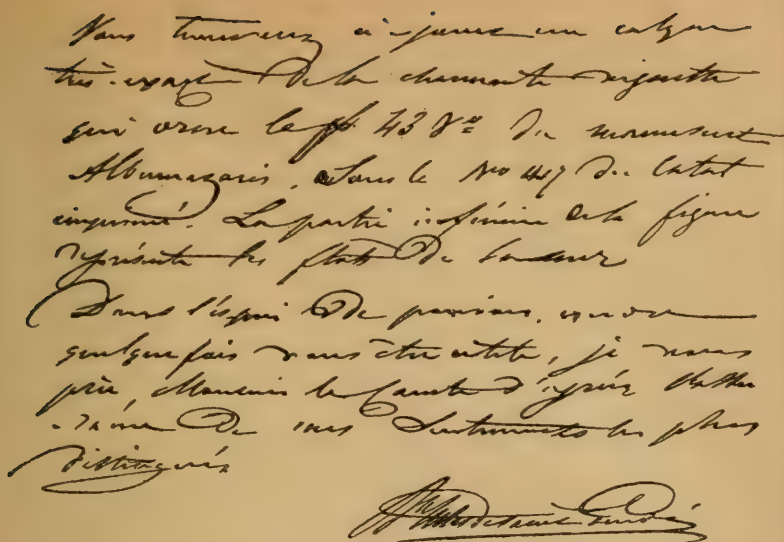 Vous trouverez ci-joint un calque
très-exact de la charmante vignette
qui orne le ff 43 Vo du manuscrit
Albumazaris, sous le No 449 du Catal
imprimé. La partie inférieure de la figure
représente les flots de
Dans l'espoir de pouvoir, encore
quelquefois vous être utile, je vous
prie, Monsieur le Comte d'agréer
de mes sentiments les plus
distingués